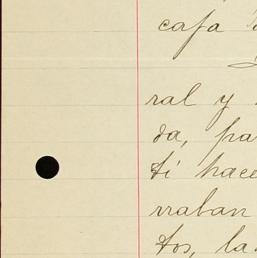 cafa
ral y
da, pa
tí hace
vraban
tos, la